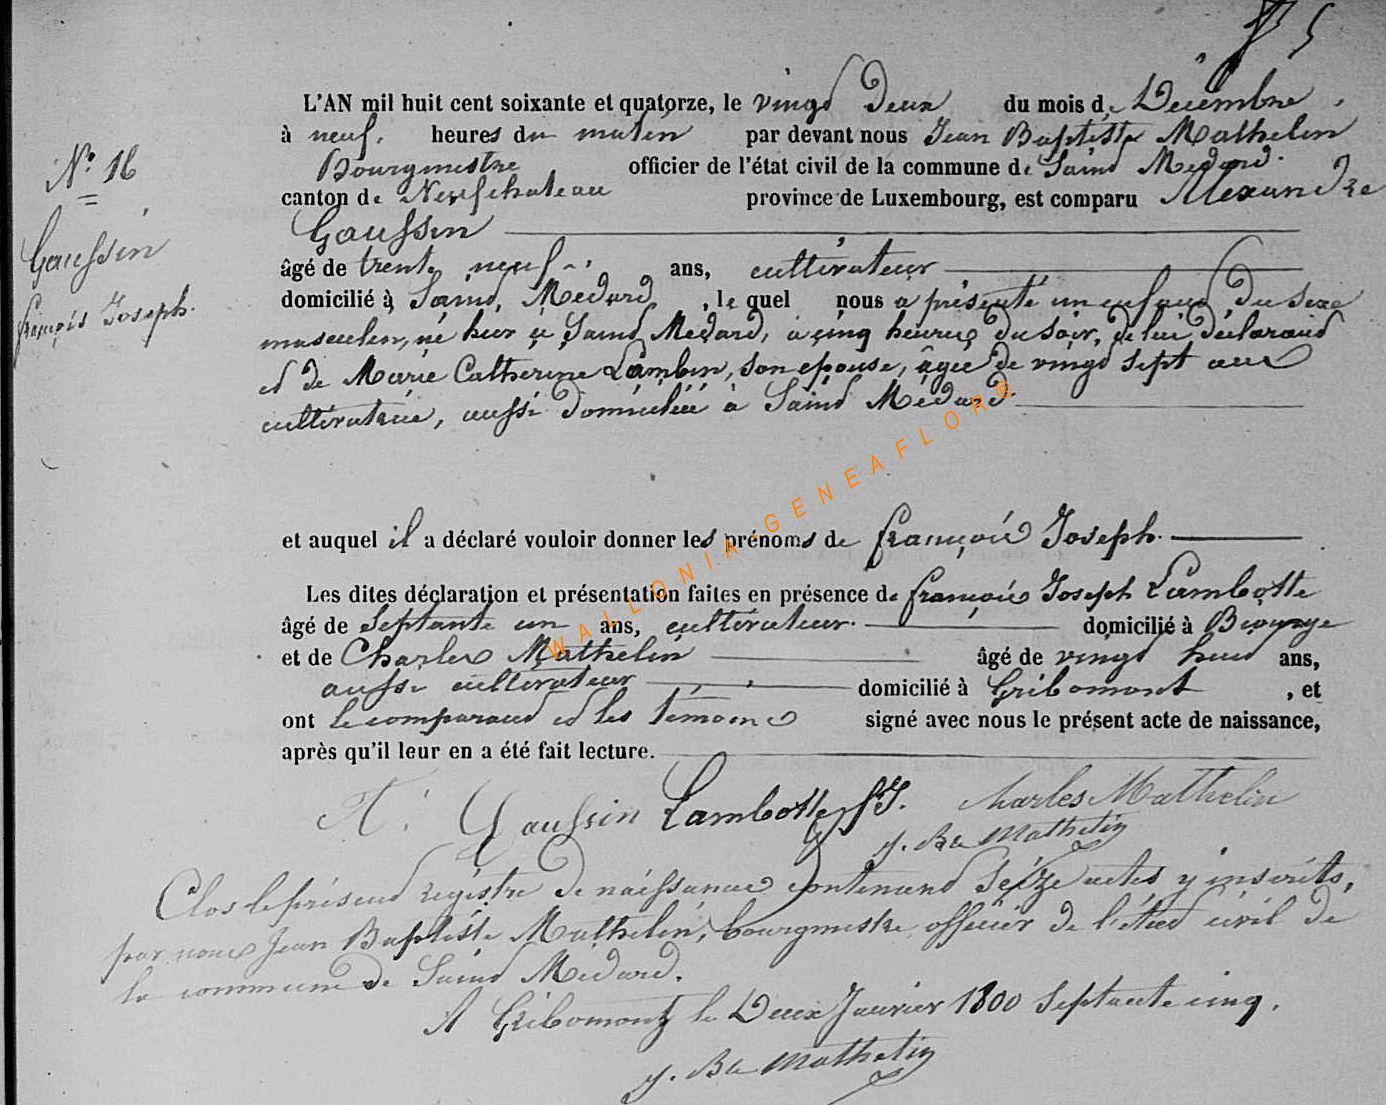 5
L'AN mil huit cent soixante et quatorze, le vingt Deux du mois de Décembre,
à neuf heures du matin par devant nous Jean Baptiste Mathelin
N° 16
Bourgmestre officier de l'état civil de la commune de Saint Médard
canton de Neufchateau province de Luxembourg, est comparu Alexandre
Gaussin
âgé de trente neuf ans, cultivateur
Gaussin
François Joseph.
domicilié à Saint Médard, lequel nous a présenté un enfant du sexe
masculin, né hier à Saint Médard, à cinq heures du soir, de lui déclarant
et de Marie Catherine Lambin, son épouse, âgée de vingt sept ans
cultivatrice, aussi domiciliée à Saint Médard
et auquel il a déclaré vouloir donner les prénoms de François Joseph.
WALLONIA-GENEAFLOR®
Les dites déclaration et présentation faites en présence de François Joseph Lambotte
âgé de Septante un ans, cultivateur. domicilié à Biourge
et de Charles Mathelin âgé de vingt huit ans,
aussi cultivateur domicilié à Gribomont, et
ont le comparant et les témoins signé avec nous le présent acte de naissance,
après qu'il leur en a été fait lecture.
A. Gaussin Lambotte f.J. Charles Mathelin
J. Bte Mathelin
Clos le présent registre de naissances contenant Seize actes y inscrits,
par nous Jean Baptiste Mathelin, bourgmestre officier de l'état civil de
la commune de Saint Médard.
A Gribomont le Deux Janvier 1800 Septante cinq.
J. Bte Mathelin